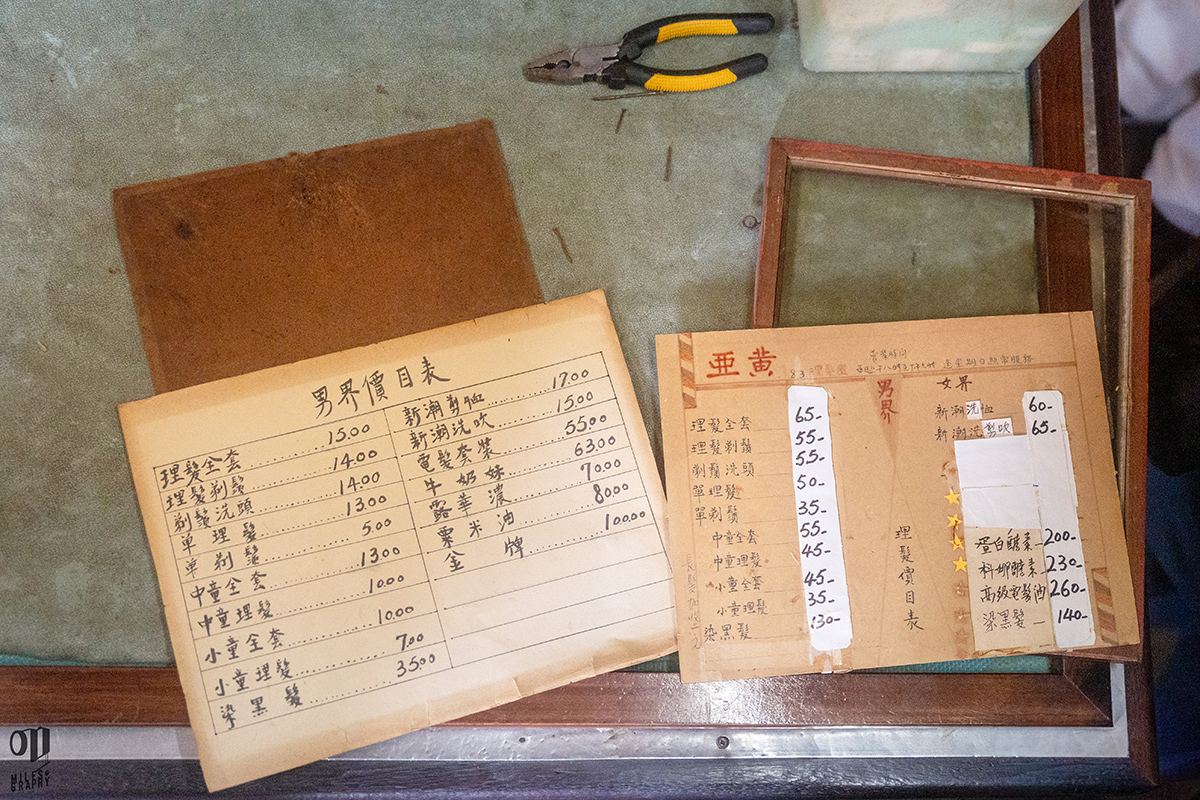 男界價目表
理髮全套 15.00
理髮剃鬚 14.00
剃鬚洗頭 14.00
單理髮 13.00
單剃鬚 5.00
中童全套 13.00
中童理髮 10.00
小童全套 10.00
小童理髮 7.00
染黑髮 35.00
新潮剪恤 17.00
新潮洗吹 15.00
電髮套裝 55.00
牛奶妹 63.00
露華濃 70.00
粟米油 80.00
金牌 100.00
亜黄
男界
理髮全套 65-
理髮剃鬚 55-
剃鬚洗頭 55-
單理髮 50-
單剃鬚 35-
中童全套 55-
中童理髮 45-
小童全套 45-
小童理髮 35-
染黑髮 130-
理髮價目表
女界
新潮洗恤 60-
新潮洗剪吹 65-
蛋白酸素 200-
科娜酸素 230-
高級電髮油 260-
染黑髮 140-
MILES
GRAPHY